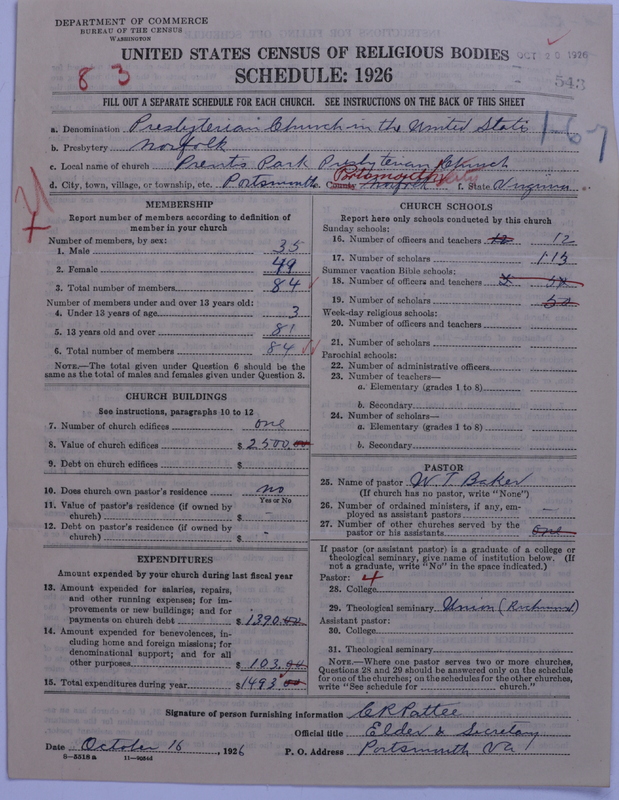 DEPARTMENT OF COMMERCE
BUREAU OF THE CENSUS
WASHINGTON
UNITED STATES CENSUS OF RELIGIOUS BODIES
OCT 20 1926
SCHEDULE: 1926
8 3
543
FILL OUT A SEPARATE SCHEDULE FOR EACH CHURCH. SEE INSTRUCTIONS ON THE BACK OF THIS SHEET
a. Denomination Presbyterian Church in the United States
167
b. Presbytery Norfolk
c. Local name of church Prentis Park Presbyterian Church
d. City, town, village, or township, etc. Portsmouth e. County Norfolk Portsmouth City f. State Virginia
MEMBERSHIP
Report number of members according to definition of member in your church
Number of members, by sex:
1. Male 35
2. Female 49
3. Total number of members 84
Number of members under and over 13 years old:
4. Under 13 years of age 3
5. 13 years old and over 81
6. Total number of members 84
NOTE.—The total given under Question 6 should be the same as the total of males and females given under Question 3.
CHURCH BUILDINGS
See instructions, paragraphs 10 to 12
7. Number of church edifices one
8. Value of church edifices $ 2500.00
9. Debt on church edifices $
10. Does church own pastor's residence no
Yes or No
11. Value of pastor's residence (if owned by church) $ -
12. Debt on pastor's residence (if owned by church) $ -
EXPENDITURES
Amount expended by your church during last fiscal year
13. Amount expended for salaries, repairs, and other running expenses; for improvements or new buildings; and for payments on church debt $ 1390.00
14. Amount expended for benevolences, including home and foreign missions; for denominational support; and for all other purposes $ 103.00
15. Total expenditures during year $ 1493.00
CHURCH SCHOOLS
Report here only schools conducted by this church
Sunday schools:
16. Number of officers and teachers 12 12
17. Number of scholars 113
Summer vacation Bible schools:
18. Number of officers and teachers
19. Number of scholars
Week-day religious schools:
20. Number of officers and teachers
21. Number of scholars
Parochial schools:
22. Number of administrative officers
23. Number of teachers—
a. Elementary (grades 1 to 8)
b. Secondary
24. Number of scholars—
a. Elementary (grades 1 to 8)
b. Secondary
PASTOR
25. Name of pastor W. T. Baker
(If church has no pastor, write "None")
26. Number of ordained ministers, if any, employed as assistant pastors -
27. Number of other churches served by the pastor or his assistants one
If pastor (or assistant pastor) is a graduate of a college or theological seminary, give name of institution below. (If not a graduate, write "No" in the space indicated.)
Pastor:
28. College
29. Theological seminary Union (Richmond)
Assistant pastor:
30. College
31. Theological seminary
NOTE.—Where one pastor serves two or more churches, Questions 28 and 29 should be answered only on the schedule for one of the churches; on the schedules for the other churches, write "See schedule for ........ church."
Signature of person furnishing information C R Pattee
Official title Elder & Secretary
Date October 16, 1926 P. O. Address Portsmouth Va
8-5518 a